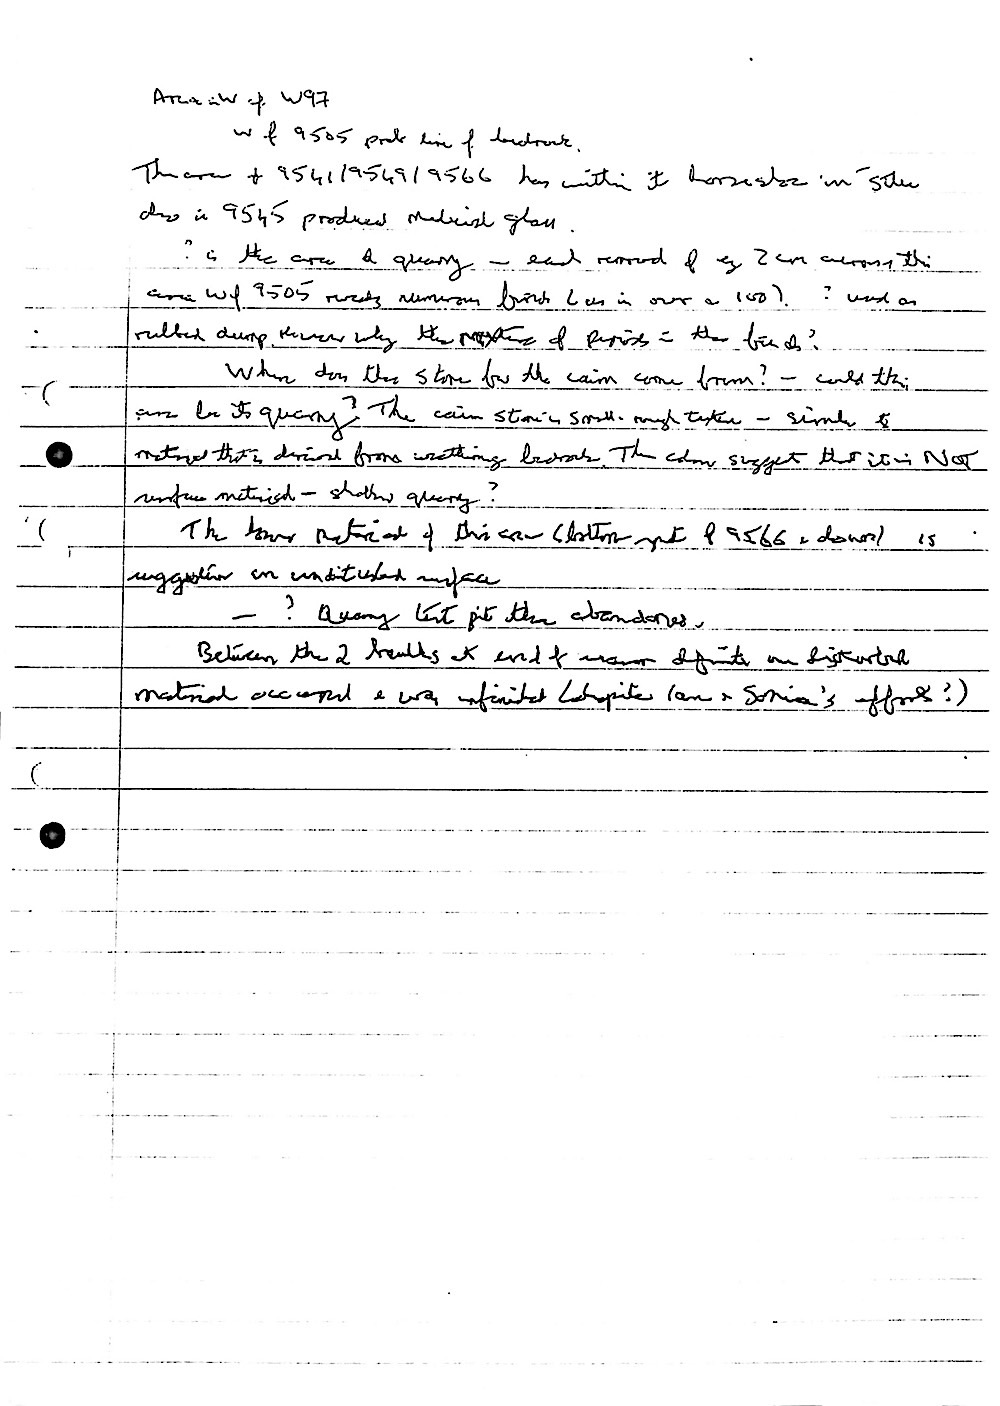 Area W of W97
W of 9505 prob line of bedrock.
The area of 9541/9549/9566 has within it horseshoe in situ
also in 9545 produced medieval glass.
? is the area a quarry - each removal of eg 2cm across this
area W of 9505 reveals numerous finds (as in over a 100). ? used as
rubble dump hence why the mixture of periods in the finds?
Where does the stone for the cairn come from? - could this
area be its quarry? The cairn stone is small rough - similar to
material that is derived from weathering bedrock. The colour suggest that it is NOT
surface material - shallow quarry?
The lower material of this area (bottom part of 9566 & down) is
suggestive an undisturbed surface
- ? Quarry test pit then abandoned.
Between the 2 baulks at end of season definite undisturbed
material occurred & was unfinished (despite Ian & Sonia's efforts?)